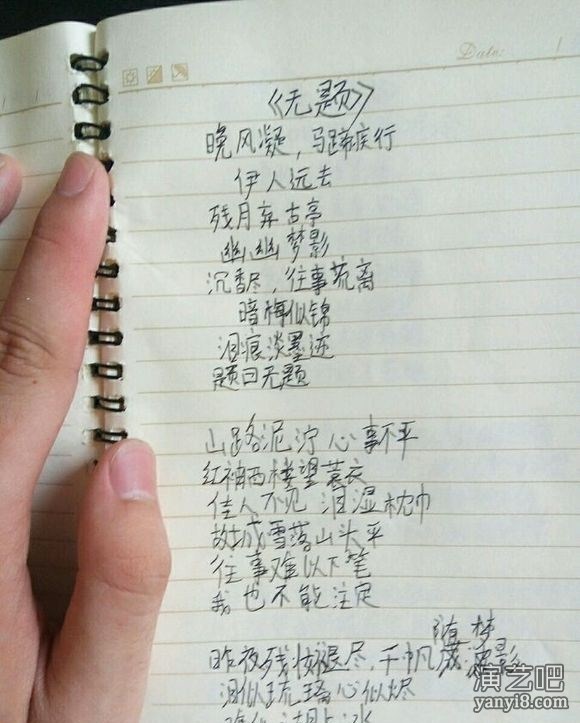 Date:
《无题》
晚风凝，马蹄疾行
伊人远去
残月弃古亭
幽幽梦影
沉香尽，往事流离
暗梅似锦
泪痕淡墨迹
题曰无题
山路泥泞心事不平
红袖西楼望蓑衣
佳人不见 泪湿枕巾
故城雪落山头平
往事难以下笔
我也不能注定
随梦
昨夜残妆褪尽，千帆成
泪似琉璃心似烬
演艺吧
www.yanyi8.com